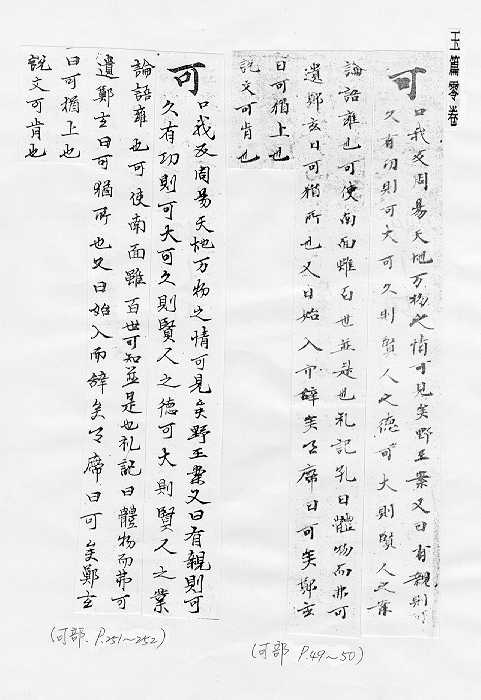 玉篇零卷
可
口我反周易天地万物之情可見矣野王案又曰有親則可
久有功則可大可久則賢人之德可大則賢人之業
論語雍也可使南面雖百世並是也礼記孔曰體物而弗可
遺鄭玄曰可猶所也又曰始入而辞矣席曰可矣鄭玄
曰可猶上也
說文可肯也
可
口我反周易天地万物之情可見矣野王案又曰有親則可
久有功則可大可久則賢人之德可大則賢人之業
論語雍也可使南面雖百世可知並是也礼記曰體物而弗可
遺鄭玄曰可猶所也又曰始入而辞矣席曰可矣鄭玄
曰可猶上也
說文可肯也
(可部 P.49~50)
(可部. P.251~252)